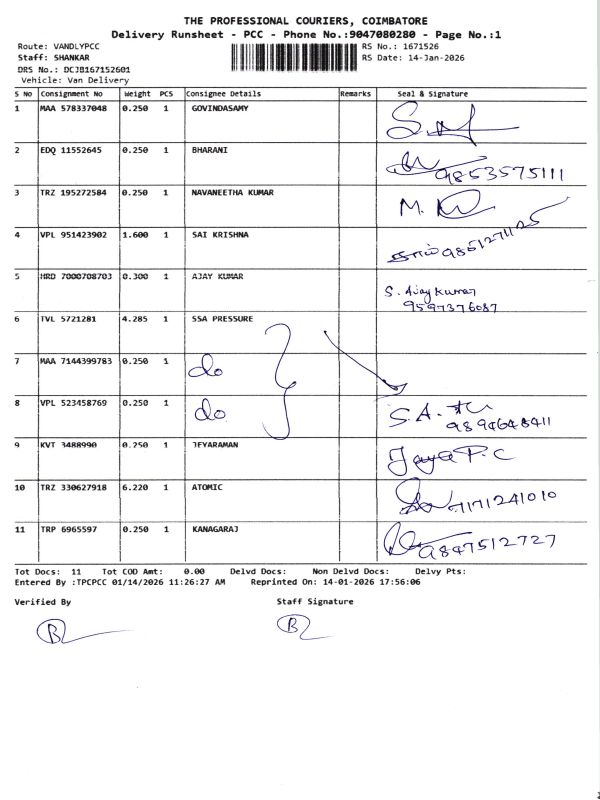 THE PROFESSIONAL COURIERS, COIMBATORE
Delivery Runsheet - PCC - Phone No.:9047080280 - Page No.:1
Route: VANDLYPCC RS No.: 1671526
Staff: SHANKAR RS Date: 14-Jan-2026
DRS No.: DCJB167152601
Vehicle: Van Delivery
S No Consignment No Weight PCS Consignee Details Remarks Seal & Signature
1 MAA 578337048 0.250 1 GOVINDASAMY
2 EDQ 11552645 0.250 1 BHARANI 9853575111
3 TRZ 195272584 0.250 1 NAVANEETHA KUMAR M.
4 VPL 951423902 1.600 1 SAI KRISHNA
5 HRD 7000708703 0.300 1 AJAY KUMAR S. Ajay Kumar
9597376087
6 TVL 5721281 4.285 1 SSA PRESSURE
7 MAA 7144399783 0.250 1 do
8 VPL 523458769 0.250 1 do S.A.
9894648411
9 KVT 3488990 0.250 1 JEYARAMAN Jaya P.C
10 TRZ 330627918 6.220 1 ATOMIC 7171241010
11 TRP 6965597 0.250 1 KANAGARAJ 9847512727
Tot Docs: 11 Tot COD Amt: 0.00 Delvd Docs: Non Delvd Docs: Delvy Pts:
Entered By :TPCPCC 01/14/2026 11:26:27 AM Reprinted On: 14-01-2026 17:56:06
Verified By Staff Signature